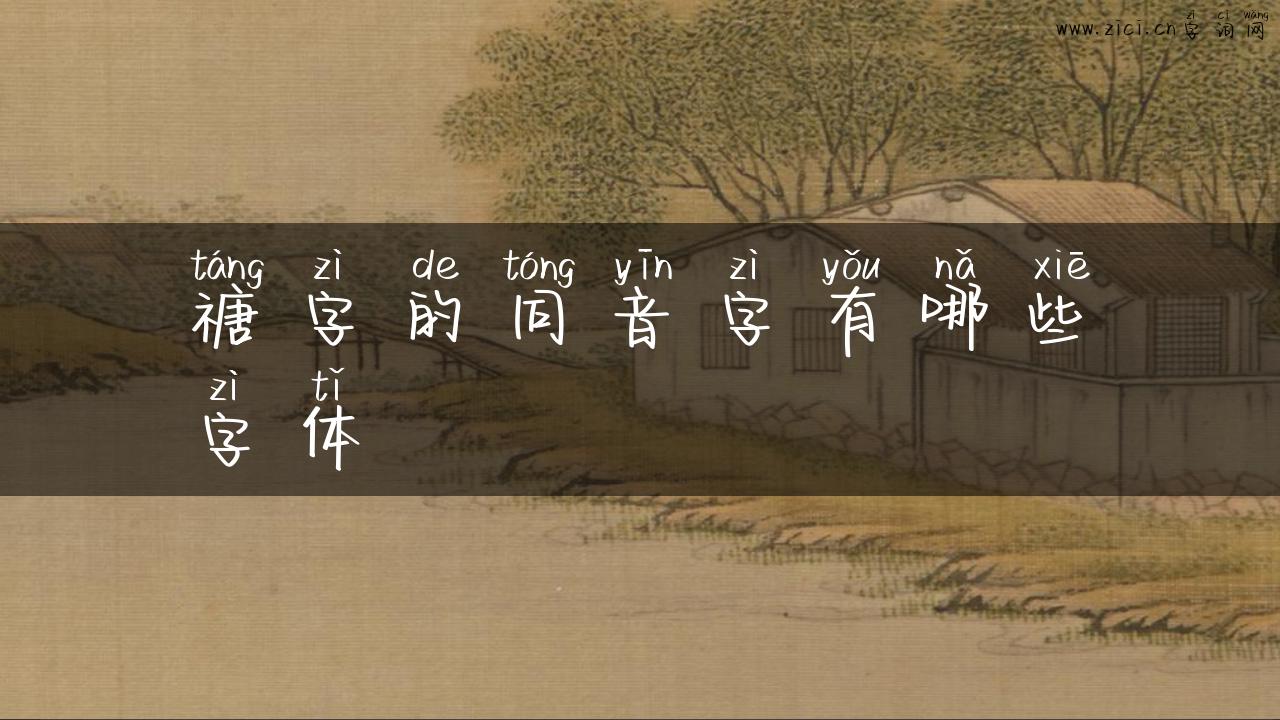 www.zici.cn
zì cí wǎng
字词网
táng zì de tóng yīn zì yǒu nǎ xiē
禟字的同音字有哪些
zì tǐ
字体